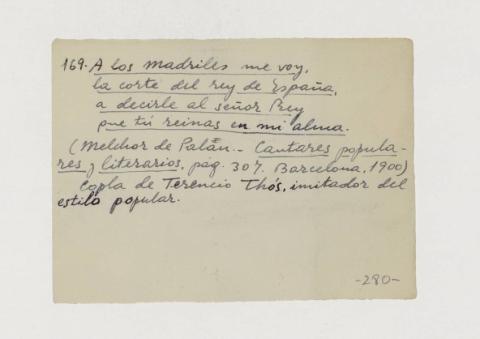 169.- A los madriles me voy,
la corte del rey de España,
a decirle al señor Rey
que tú reinas en mi alma.
(Melchor de Palau.- Cantares popula-
res y literarios, pág. 307. Barcelona, 1900)
Copla de Terencio Thós, imitador del
estilo popular.
-280-